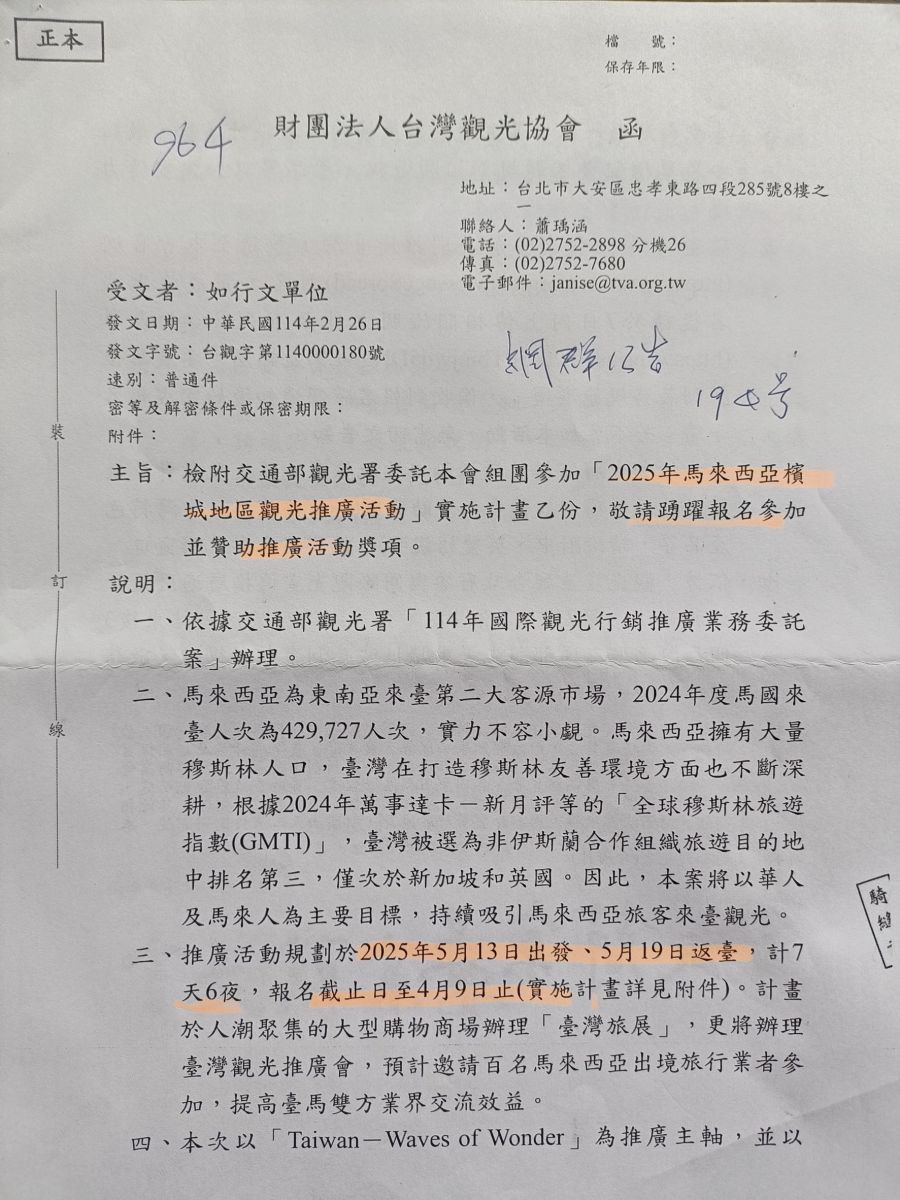 正本
檔　　號：
保存年限：
財團法人台灣觀光協會　函
964
地址：台北市大安區忠孝東路四段285號8樓之
一
聯絡人：蕭瑀涵
電話：(02)2752-2898 分機26
傳真：(02)2752-7680
電子郵件：janise@tva.org.tw
受文者：如行文單位
發文日期：中華民國114年2月26日
發文字號：台觀字第1140000180號
速別：普通件
密等及解密條件或保密期限：
附件：
網群公告
194号
主旨：檢附交通部觀光署委託本會組團參加「2025年馬來西亞檳
城地區觀光推廣活動」實施計畫乙份，敬請踴躍報名參加
並贊助推廣活動獎項。
說明：
一、依據交通部觀光署「114年國際觀光行銷推廣業務委託
案」辦理。
二、馬來西亞為東南亞來臺第二大客源市場，2024年度馬國來
臺人次為429,727人次，實力不容小覷。馬來西亞擁有大量
穆斯林人口，臺灣在打造穆斯林友善環境方面也不斷深
耕，根據2024年萬事達卡－新月評等的「全球穆斯林旅遊
指數(GMTI)」，臺灣被選為非伊斯蘭合作組織旅遊目的地
中排名第三，僅次於新加坡和英國。因此，本案將以華人
及馬來人為主要目標，持續吸引馬來西亞旅客來臺觀光。
三、推廣活動規劃於2025年5月13日出發、5月19日返臺，計7
天6夜，報名截止日至4月9日止(實施計畫詳見附件)。計畫
於人潮聚集的大型購物商場辦理「臺灣旅展」，更將辦理
臺灣觀光推廣會，預計邀請百名馬來西亞出境旅行業者參
加，提高臺馬雙方業界交流效益。
四、本次以「Taiwan－Waves of Wonder」為推廣主軸，並以
裝
訂
線
騎
縫